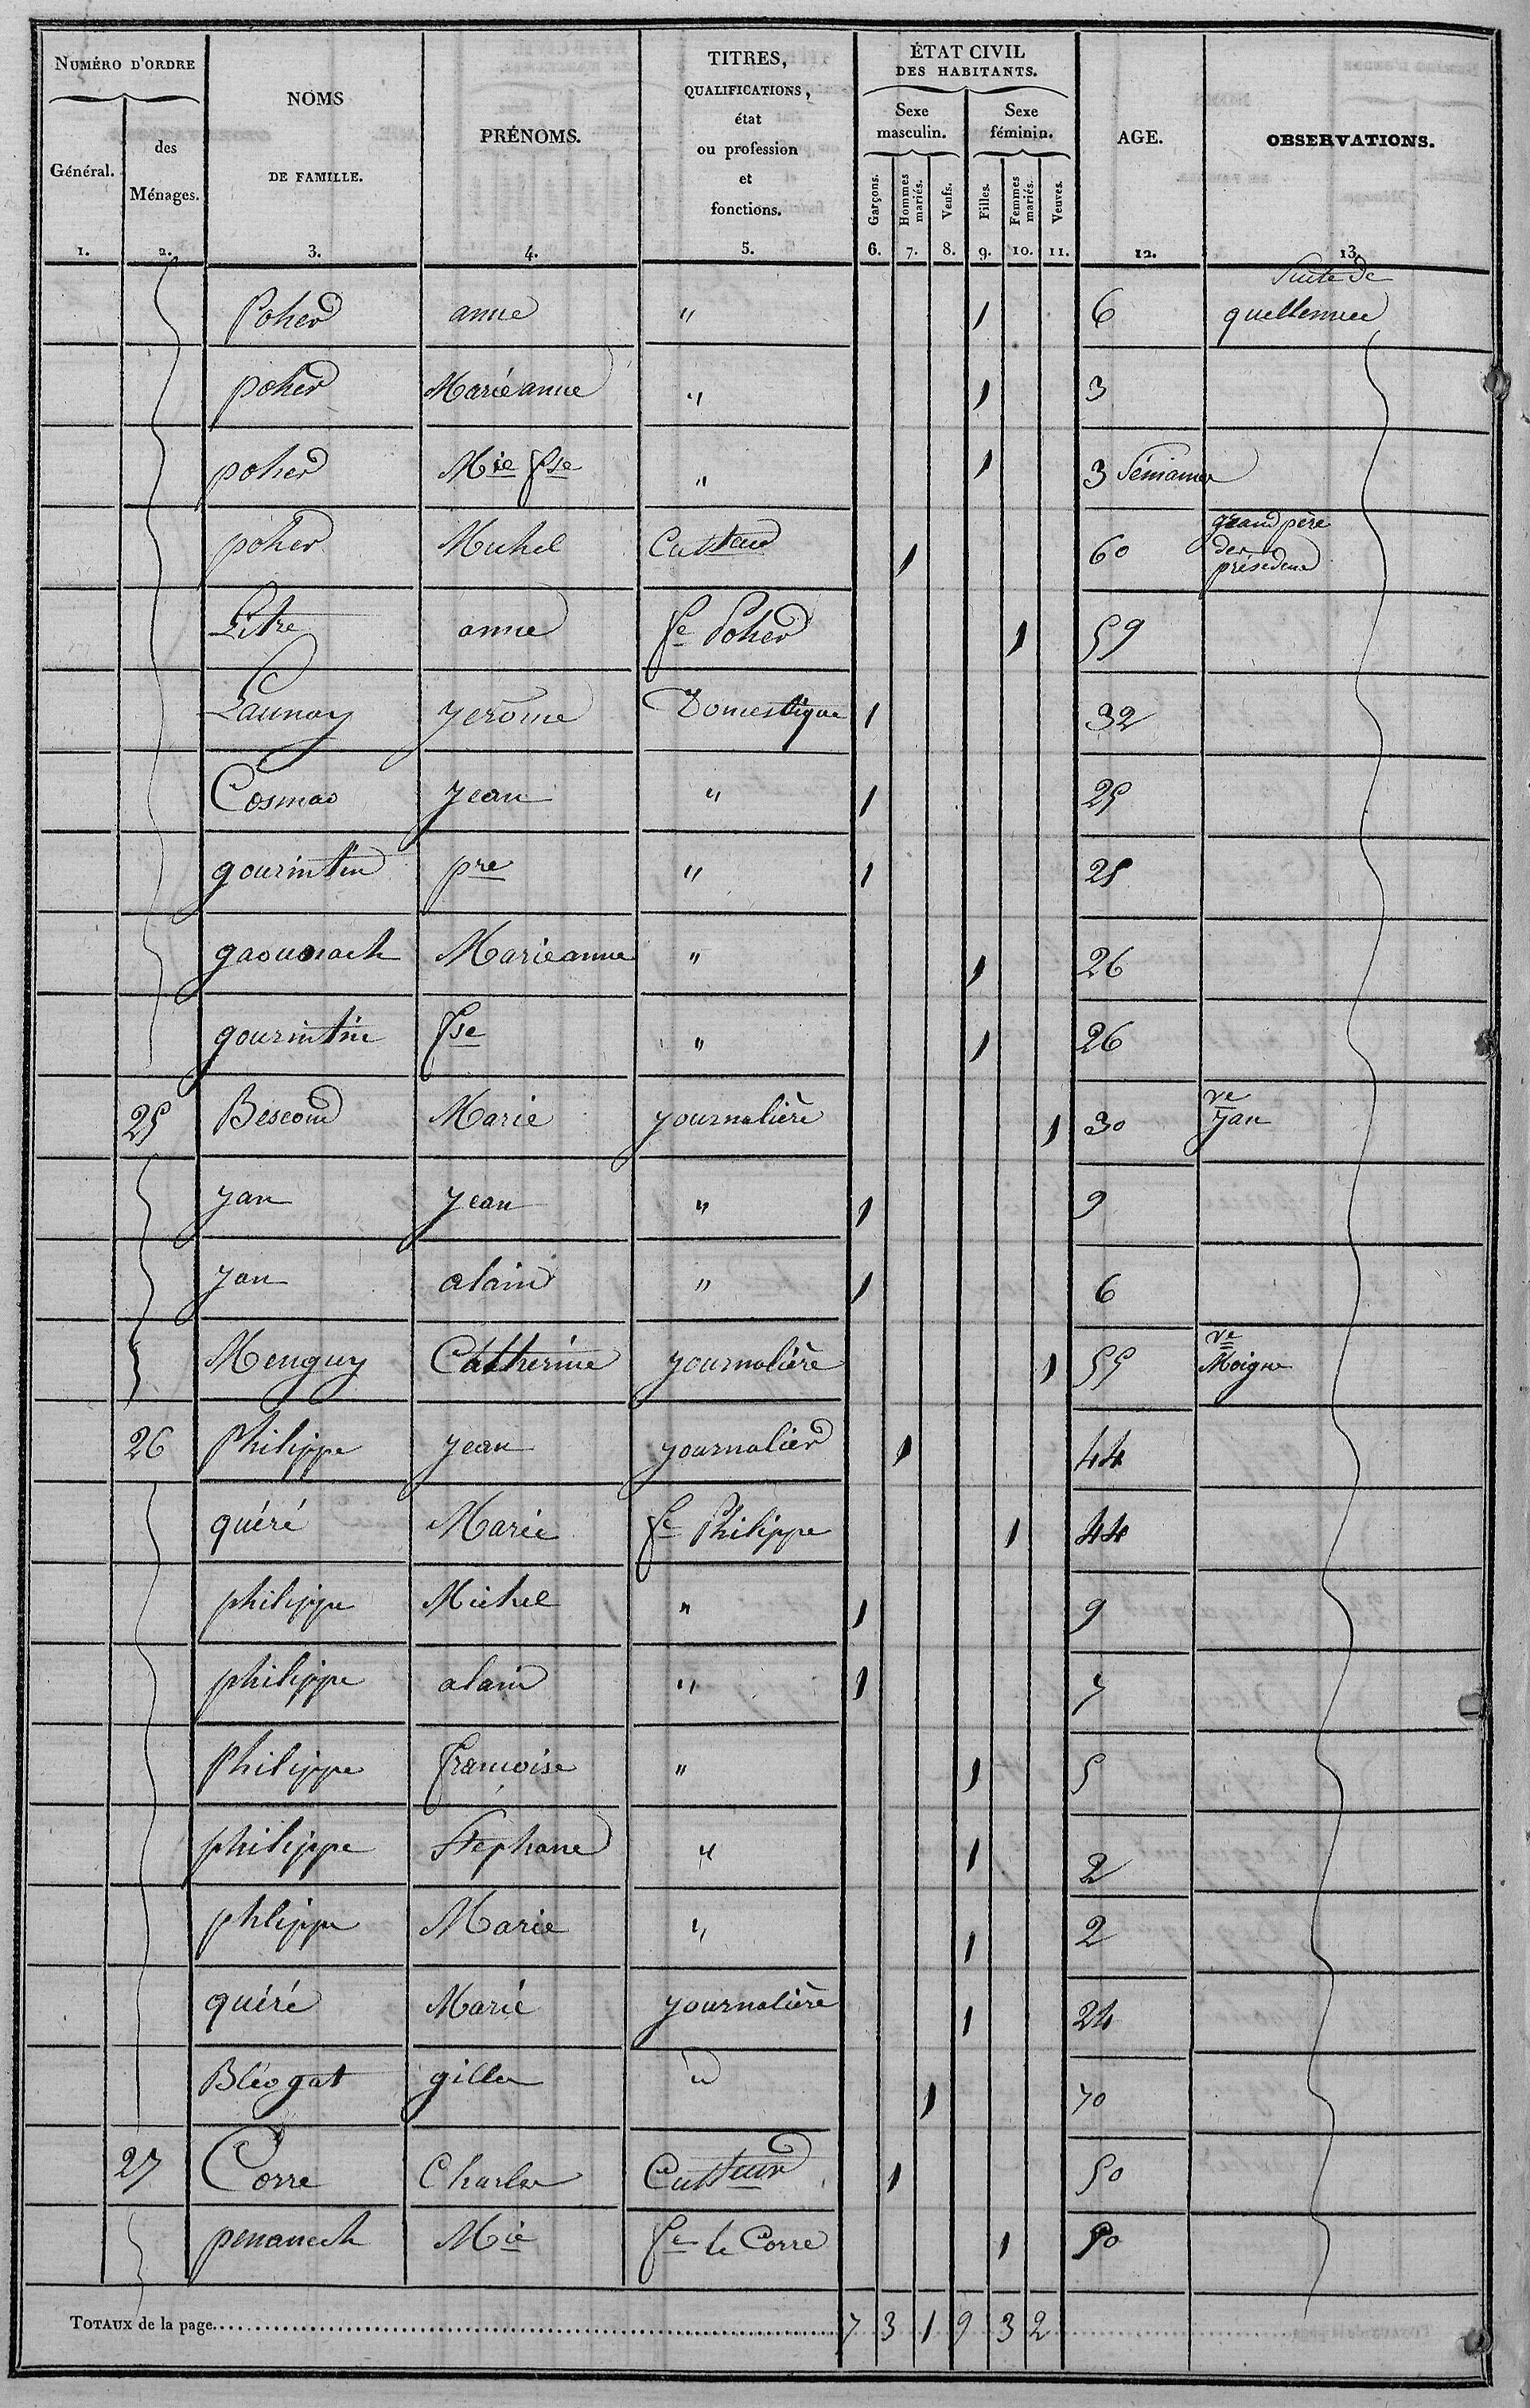 NUMÉRO D'ORDRE
Général.
des Ménages.
NOMS DE FAMILLE.
PRÉNOMS.
TITRES, QUALIFICATIONS, état ou profession et fonctions.
ÉTAT CIVIL DES HABITANTS.
Sexe masculin.
Sexe féminin.
Garçons.
Hommes mariés.
Veufs.
Filles.
Femmes mariés.
Veuves.
AGE.
OBSERVATIONS.
1. 2. 3. 4. 5. 6. 7. 8. 9. 10. 11. 12. 13.
Suite de
Poher anne " 1 6 quellennec
poher Marieanne " 1 3
poher Mie fse " 1 3 Semaines
poher Michel Cultteur 1 60 grand père des présedens
Litre anne fe Poher 1 59
Launay yerôme Domestique 1 32
Cosmao yean " 1 25
gourintin pre " 1 25
gaouarach Marieanne " 1 26
gourintin fse " 1 26
25 Bescond Marie yournalière 1 30 ve yan
yan yean " 1 9
yan alain " 1 6
Menguy Catherine yournalière 1 55 ve Moigne
26 Philippe yean yournalier 1 44
quéré Marie fe Philippe 1 44
philippe Michel " 1 9
philippe alain " 1 7
Philippe francoise " 1 5
philippe Stephane " 1 2
phlippe Marie " 1 2
quéré Marie yournalière 1 24
Bléogat gilles id 1 70
27 Corre Charles Cultteur 1 50
penanech Mie fe le Corre 1 50
TOTAUX de la page 7 3 1 9 3 2